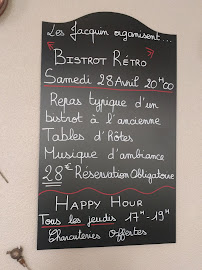 Les Jacquin organisent...
BISTROT RÉTRO
Samedi 28 Avril 20H00
Repas typique d'un
bistrot à l'ancienne
Tables d'Hôtes
Musique d'ambiance
28€ Réservation Obligatoire
HAPPY HOUR
Tous les jeudis 17H-19H
Charcuteries Offertes